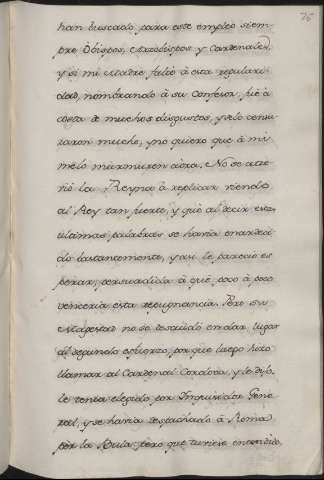 76
han buscado para este empleo siem-
pre Obispos, Arzobispos y Cardenales,
y si mi Madre faltó à esta regulari-
dad, nombrando à su Confesor fue à
costa de muchos disgustos, y selo censu-
raron mucho, y no quiero que à mi
me lo murmuren aora. No se atre-
vió la Reyna à replicar viendo
al Rey tan fuerte, y que al decir estas
ultimas palabras se havia enardeci-
do bastantemente, y asi le pareció es-
perar, persuadida à que poco à poco
venceria esta repugnancia. Pero su
Magestad no se descuidó en dar lugar
al segundo esfuerzo, porque luego hizo
llamar al Cardenal Cordova, y le dijo,
le tenia elegido por Inquisidor Gene-
ral, y se havia despachado à Roma
por la Bula: pero que tuviese entendido,